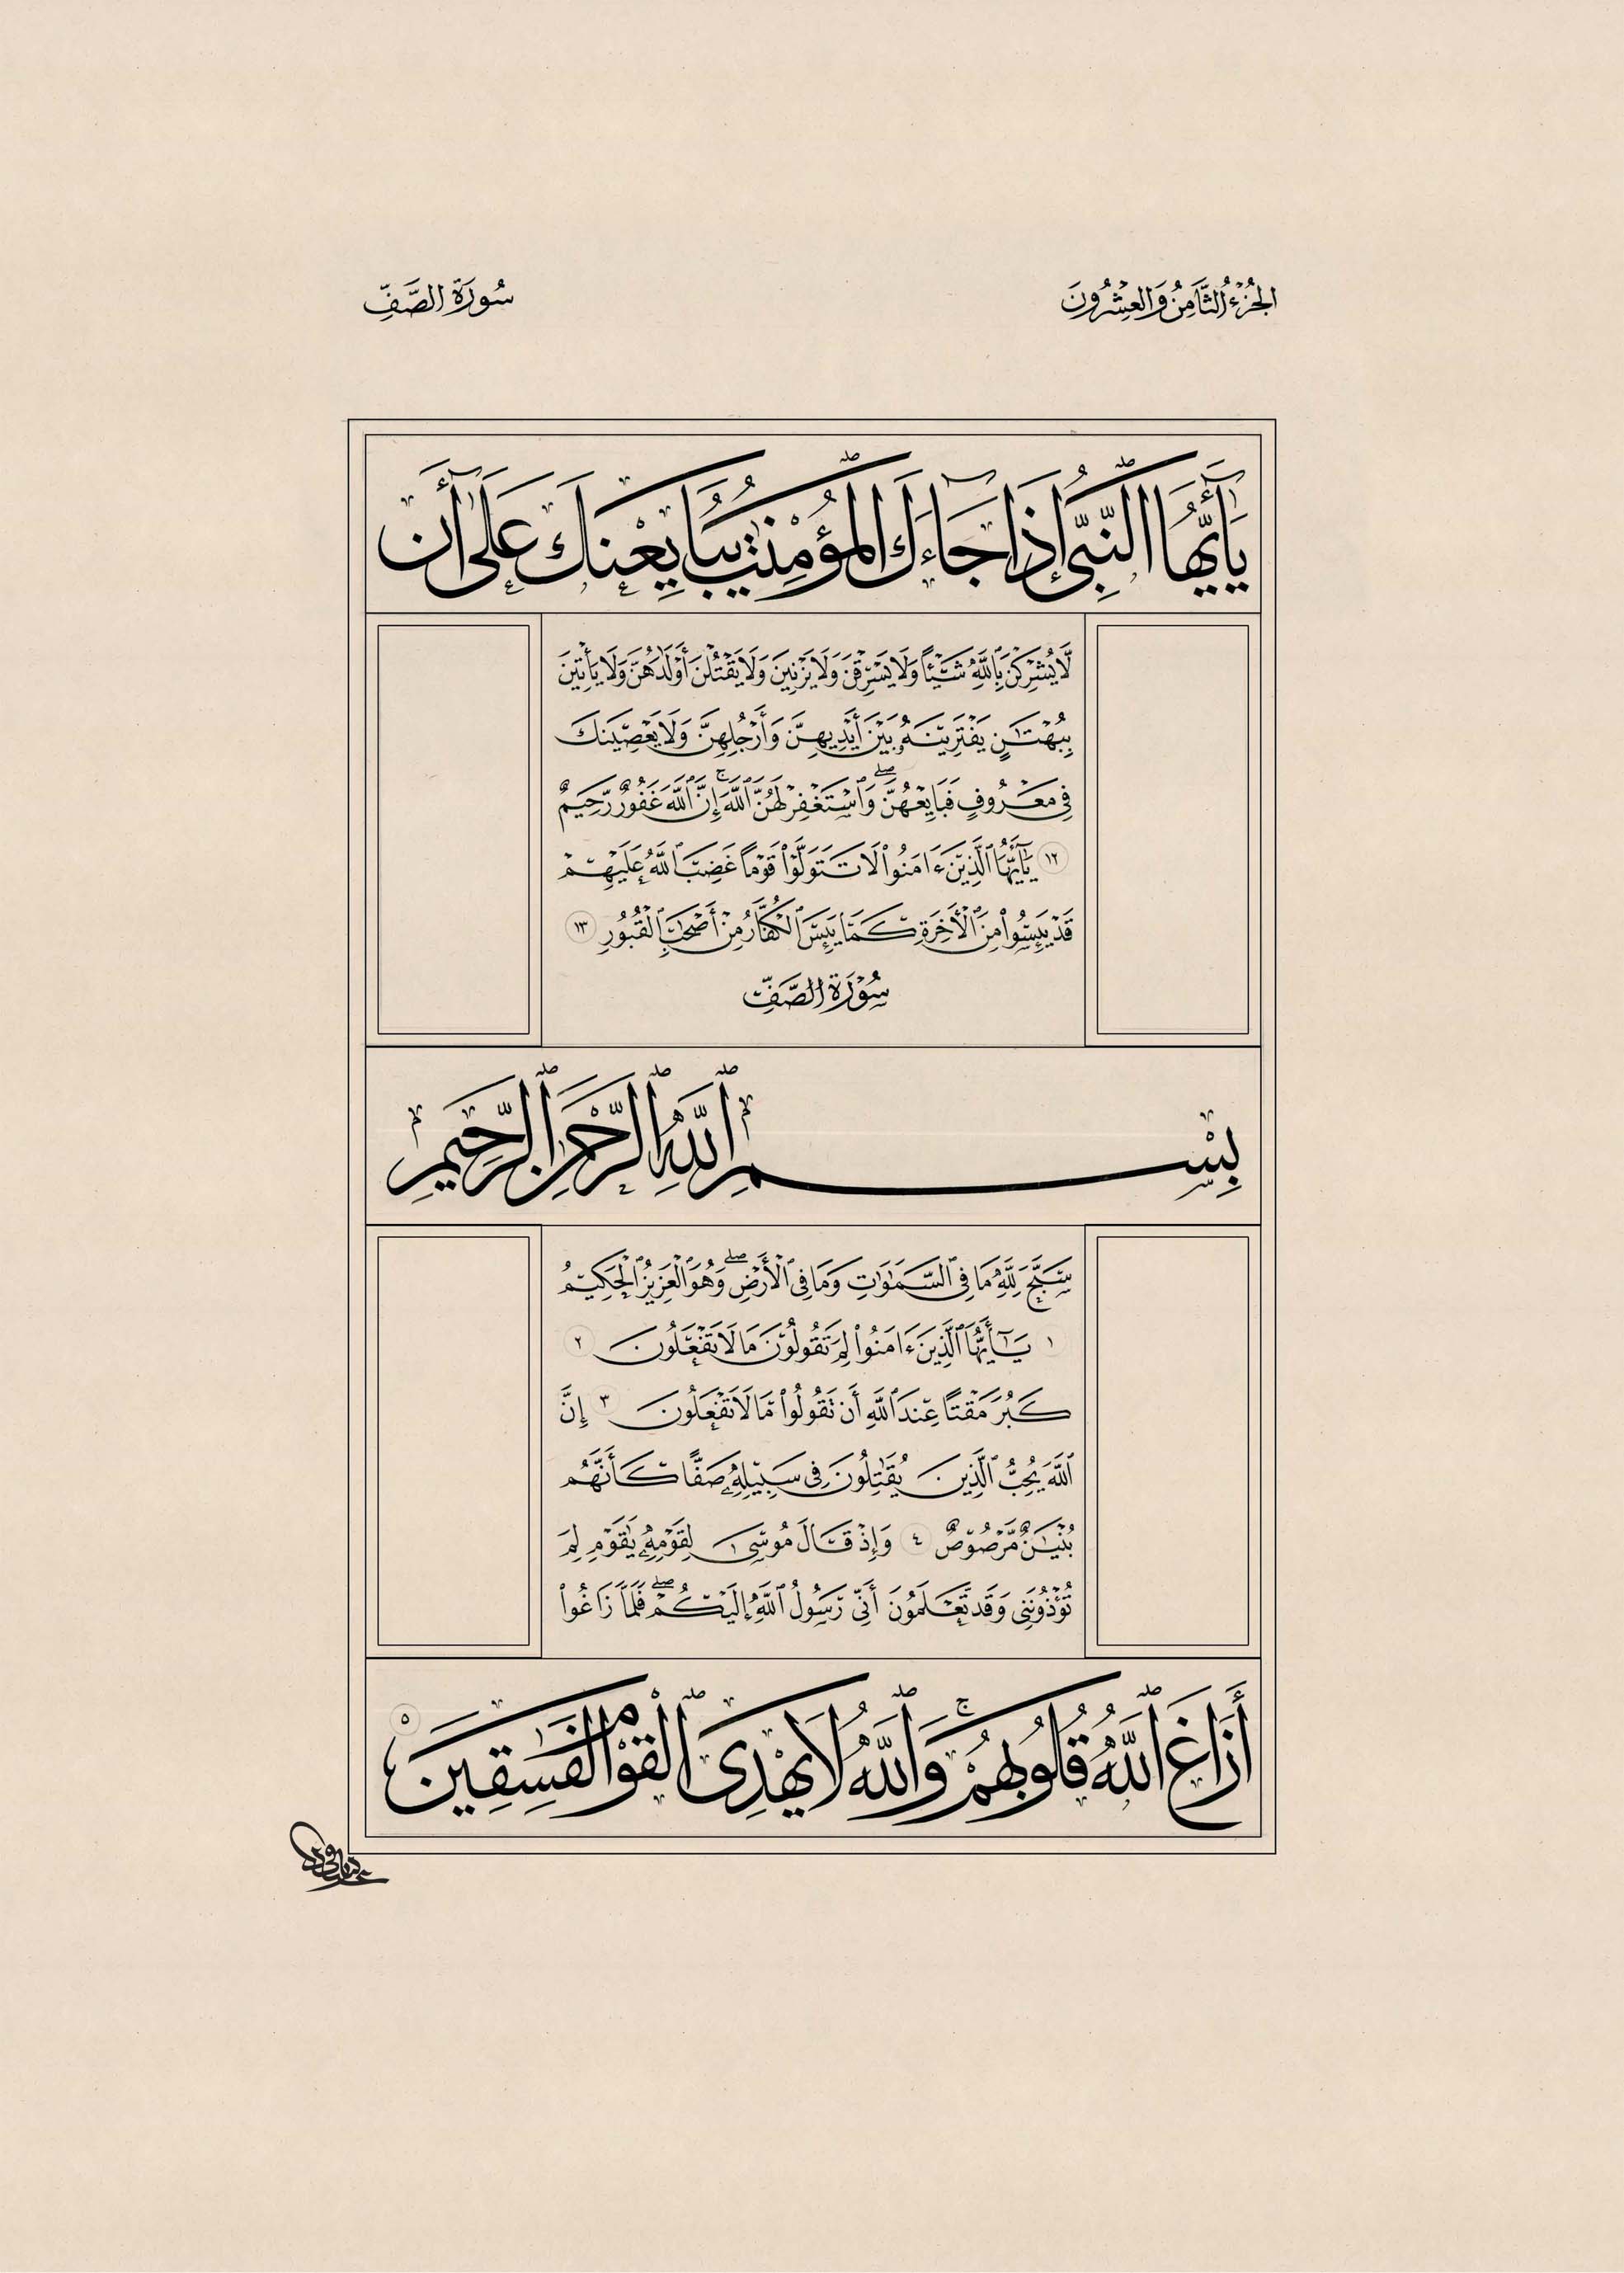 الجُزْءُ الثَّامِنُ وَالعِشْرُونَ
سُورَةُ الصَّفِّ
يَٰٓأَيُّهَا ٱلنَّبِىُّ إِذَا جَآءَكَ ٱلْمُؤْمِنَٰتُ يُبَايِعْنَكَ عَلَىٰٓ أَن
لَّا يُشْرِكْنَ بِٱللَّهِ شَيْـًٔا وَلَا يَسْرِقْنَ وَلَا يَزْنِينَ وَلَا يَقْتُلْنَ أَوْلَٰدَهُنَّ وَلَا يَأْتِينَ
بِبُهْتَٰنٍ يَفْتَرِينَهُۥ بَيْنَ أَيْدِيهِنَّ وَأَرْجُلِهِنَّ وَلَا يَعْصِينَكَ
فِى مَعْرُوفٍ فَبَايِعْهُنَّ ۖ وَٱسْتَغْفِرْ لَهُنَّ ٱللَّهَ ۚ إِنَّ ٱللَّهَ غَفُورٌ رَّحِيمٌ
١٢ يَٰٓأَيُّهَا ٱلَّذِينَ ءَامَنُوا۟ لَا تَتَوَلَّوْا۟ قَوْمًا غَضِبَ ٱللَّهُ عَلَيْهِمْ
قَدْ يَئِسُوا۟ مِنَ ٱلْءَاخِرَةِ كَمَا يَئِسَ ٱلْكُفَّارُ مِنْ أَصْحَٰبِ ٱلْقُبُورِ ١٣
سُورَةُ الصَّفِّ
بِسْمِ ٱللَّهِ ٱلرَّحْمَٰنِ ٱلرَّحِيمِ
سَبَّحَ لِلَّهِ مَا فِى ٱلسَّمَٰوَٰتِ وَمَا فِى ٱلْأَرْضِ ۖ وَهُوَ ٱلْعَزِيزُ ٱلْحَكِيمُ
١ يَٰٓأَيُّهَا ٱلَّذِينَ ءَامَنُوا۟ لِمَ تَقُولُونَ مَا لَا تَفْعَلُونَ ٢
كَبُرَ مَقْتًا عِندَ ٱللَّهِ أَن تَقُولُوا۟ مَا لَا تَفْعَلُونَ ٣ إِنَّ
ٱللَّهَ يُحِبُّ ٱلَّذِينَ يُقَٰتِلُونَ فِى سَبِيلِهِۦ صَفًّا كَأَنَّهُم
بُنْيَٰنٌ مَّرْصُوصٌ ٤ وَإِذْ قَالَ مُوسَىٰ لِقَوْمِهِۦ يَٰقَوْمِ لِمَ
تُؤْذُونَنِى وَقَد تَّعْلَمُونَ أَنِّى رَسُولُ ٱللَّهِ إِلَيْكُمْ ۖ فَلَمَّا زَاغُوٓا۟
أَزَاغَ ٱللَّهُ قُلُوبَهُمْ ۚ وَٱللَّهُ لَا يَهْدِى ٱلْقَوْمَ ٱلْفَٰسِقِينَ ٥